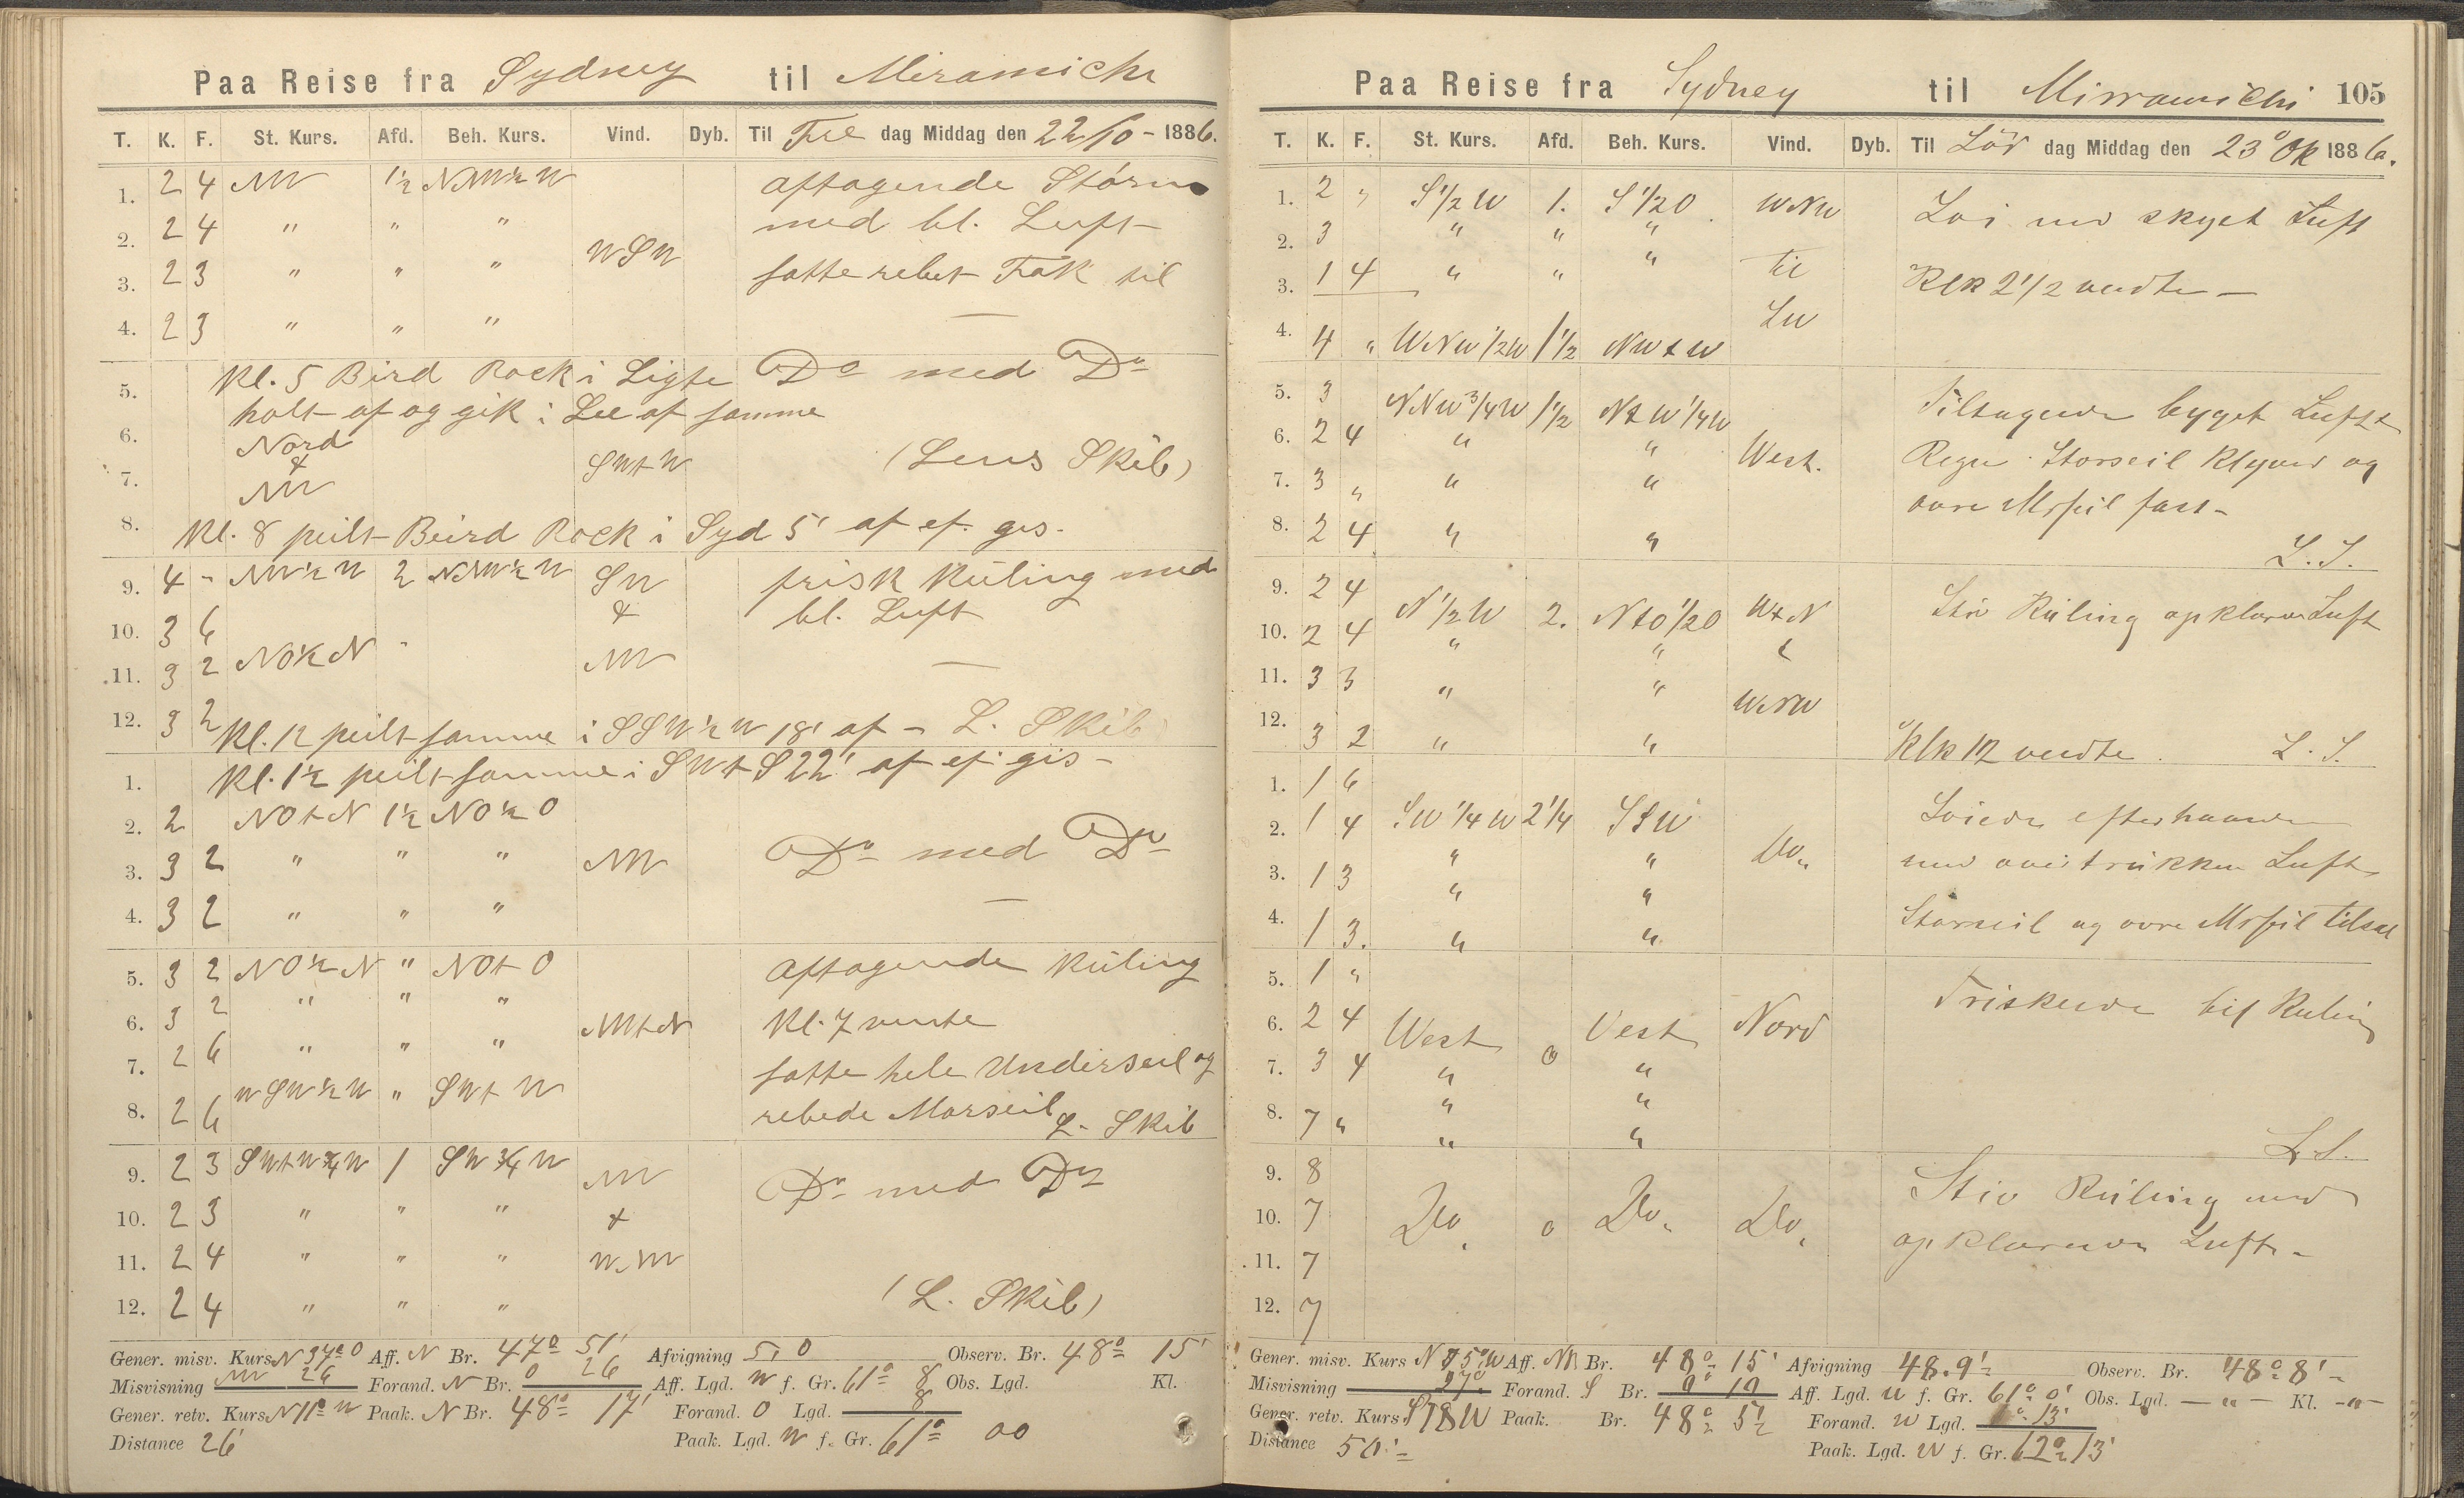 Paa Reise fra Sydney til Miramichi
T. K. F. St. Kurs. Afd. Beh. Kurs. Vind. Dyb. Til Fre dag Middag den 22/10 - 1886.
1. 2 4 NW 1½ NNW½W aftagende Storm
2. 2 4 " " " med bl. Luft
3. 2 3 " " " WSW satte rebet Fok til
4. 2 3 " " " —
5. Kl. 5 Bird Rock i Ligte Do med Do
6. holt af og gik i Lee af samme
Nord
7. & SWtW (Lens Skib)
NW
8. Kl. 8 peilt Beird Rock i Syd 5' af ef. gis.
9. 4 - NW½W 2 NNW½W SW frisk Kuling med
10. 3 6 & bl. Luft
11. 3 2 NO½N " NW —
12. 3 2 Kl. 12 peilt samme i SSW½W 18' af - L. Skib
1. Kl. 1½ peilt samme i SWtS 22' af ef gis -
2. 2 NOtN 1½ NO½O
3. 3 2 " " " NW Do med Do
4. 3 2 " " " —
5. 3 2 NO½N " NOtO aftagende Kuling
6. 3 2 " " " NWtN Kl. 7 vente
7. 2 6 " " " satte hele Underseil og
8. 2 6 WSW½W " SWtW rebede Marseil L. Skib
9. 2 3 SWtW¾W 1 SW¾W NW Do med Do
10. 2 3 " " " &
11. 2 4 " " " WNW
12. 2 4 " " " (L. Skib)
Gener. misv. Kurs N 37° O Aff. N Br. 47° 51' Afvigning 5,0 Observ. Br. 48° 15'
Misvisning NW 26 Forand. N Br. 0 26 Aff. Lgd. W f. Gr. 61° 8 Obs. Lgd. Kl.
Gener. retv. Kurs N 11° W Paak. N Br. 48° 17' Forand. O Lgd. 8
Distance 26' Paak. Lgd. W f. Gr. 61° 00
Paa Reise fra Sydney til Mirramichi 105
T. K. F. St. Kurs. Afd. Beh. Kurs. Vind. Dyb. Til Lör dag Middag den 23 Ok 1886.
1. 2 " S½W 1. S½O WNW Loi med skyet Luft
2. 3 " " "
3. 1 4 " " " til Klk 2½ vendte —
4. 4 " WNW½W 1½ NWtW LW
5. 3 NNW¾W 1½ NtW¼W Tiltagende byget Luft
6. 2 4 " " West. Regn Storseil Klyver og
7. 3 " " " övre Mrseil fast -
8. 2 4 " " L. S.
9. 2 4 N½W 2. NtO½O WtN Stiv Kuling opklarende Luft
10. 2 4 " "
11. 3 3 " " WNW
12. 3 2 " " Klk 12 vendte. L. S.
1. 1 6
2. 1 4 SW¼W 2¼ StW Loiede efterhaanden
3. 1 3 " " Do. med overtrukken Luft
4. 1 3. " " Storseil og övre Mrseil tilsat
5. 1 "
6. 2 4 West 0 Vest Nord Friskende bis Kuling
7. 3 4 " "
8. 7 " " " L. S.
9. 8 Stiv Kuling med
10. 7 Do. 0 Do. Do. opklarende Luft -
11. 7
12. 7
Gener. misv. Kurs N 75° W Aff. N Br. 48° 15' Afvigning 48.9' Observ. Br. 48° 8'
Misvisning 27° Forand. S Br. 0° 10 Aff. Lgd. W f. Gr. 61° 0' Obs. Lgd. — " — Kl. - " -
Gener. retv. Kurs S 78 W Paak. Br. 48° 5' Forand. W Lgd. 1° 13'
Distance 50' Paak. Lgd. W f. Gr. 62° 13'